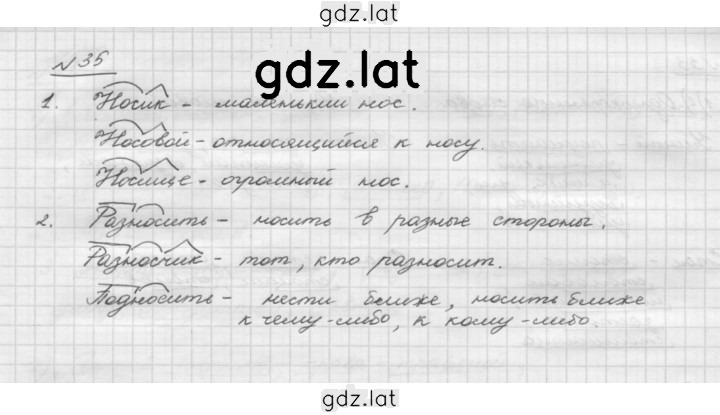 gdz.lat
№ 35
gdz.lat
1. Носик - маленький нос.
Носовой - относящийся к носу.
Носище - огромный нос.
2. Разносить - носить в разные стороны.
Разносчик - тот, кто разносит.
Подносить - нести ближе, носить ближе
к чему-либо, к кому-либо.
gdz.lat